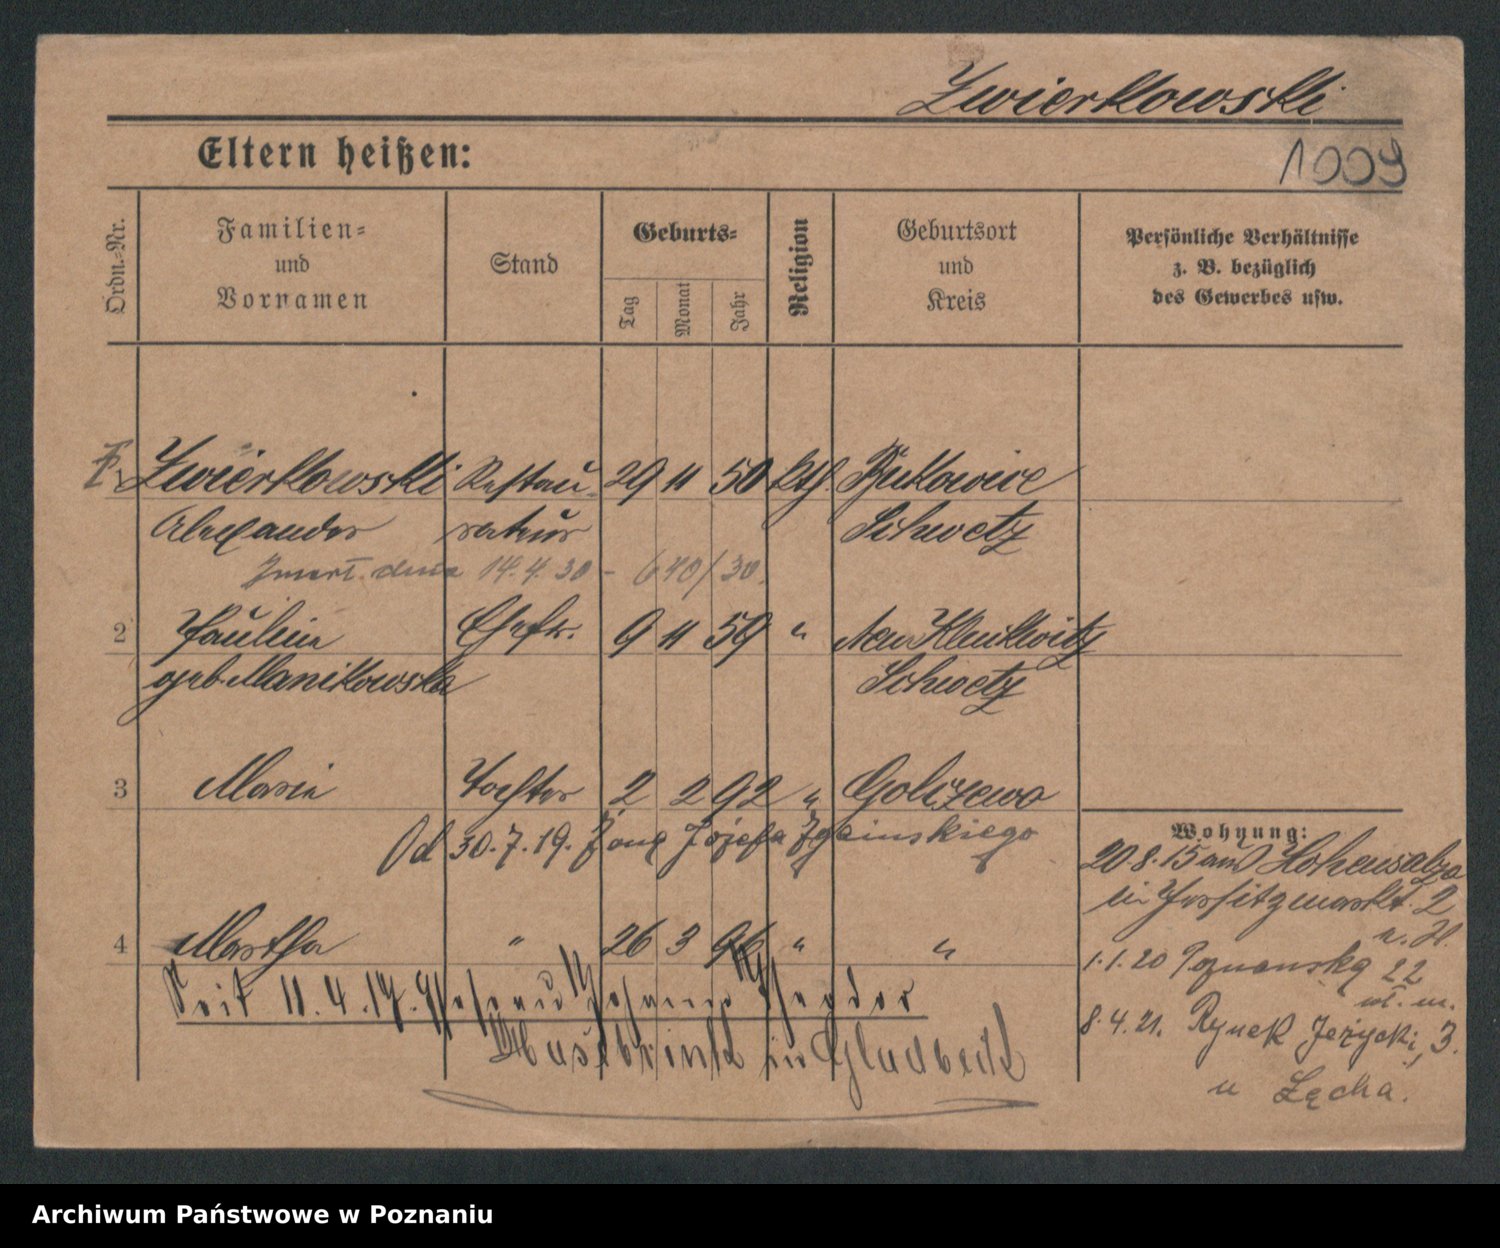 Zwierkowski
1009
Eltern heißen:
Ordn.-Nr.
Familien- und Vornamen
Stand
Geburts-
Tag
Monat
Jahr
Religion
Geburtsort und Kreis
Persönliche Verhältnisse
z. B. bezüglich
des Gewerbes usw.
1 Zwierkowski Restau- 29 11 50 kth. Bukowice
Alexander rateur Schwetz
Zmarł dnia 14.4.30 - 640/30.
2 Pauline Ehefr. 9 11 59 " Neu
geb. Manikowska Schwetz
3 Maria Tochter 2 2 92 " Golizewo
Od 30.7.19. żoną Józefa
4 Martha " 26 3 96 " "
Seit 11.4.19. Ehefrau Theodor
Husebrink in Gladbeck
Wohnung:
20.8.15 aus Hohensalza
in Jersitzmarkt 2
b. H.
1.1.20 Poznańska 22
m.
8.4.21. Rynek Jeżycki, 3.
u Łęcha.
Archiwum Państwowe w Poznaniu